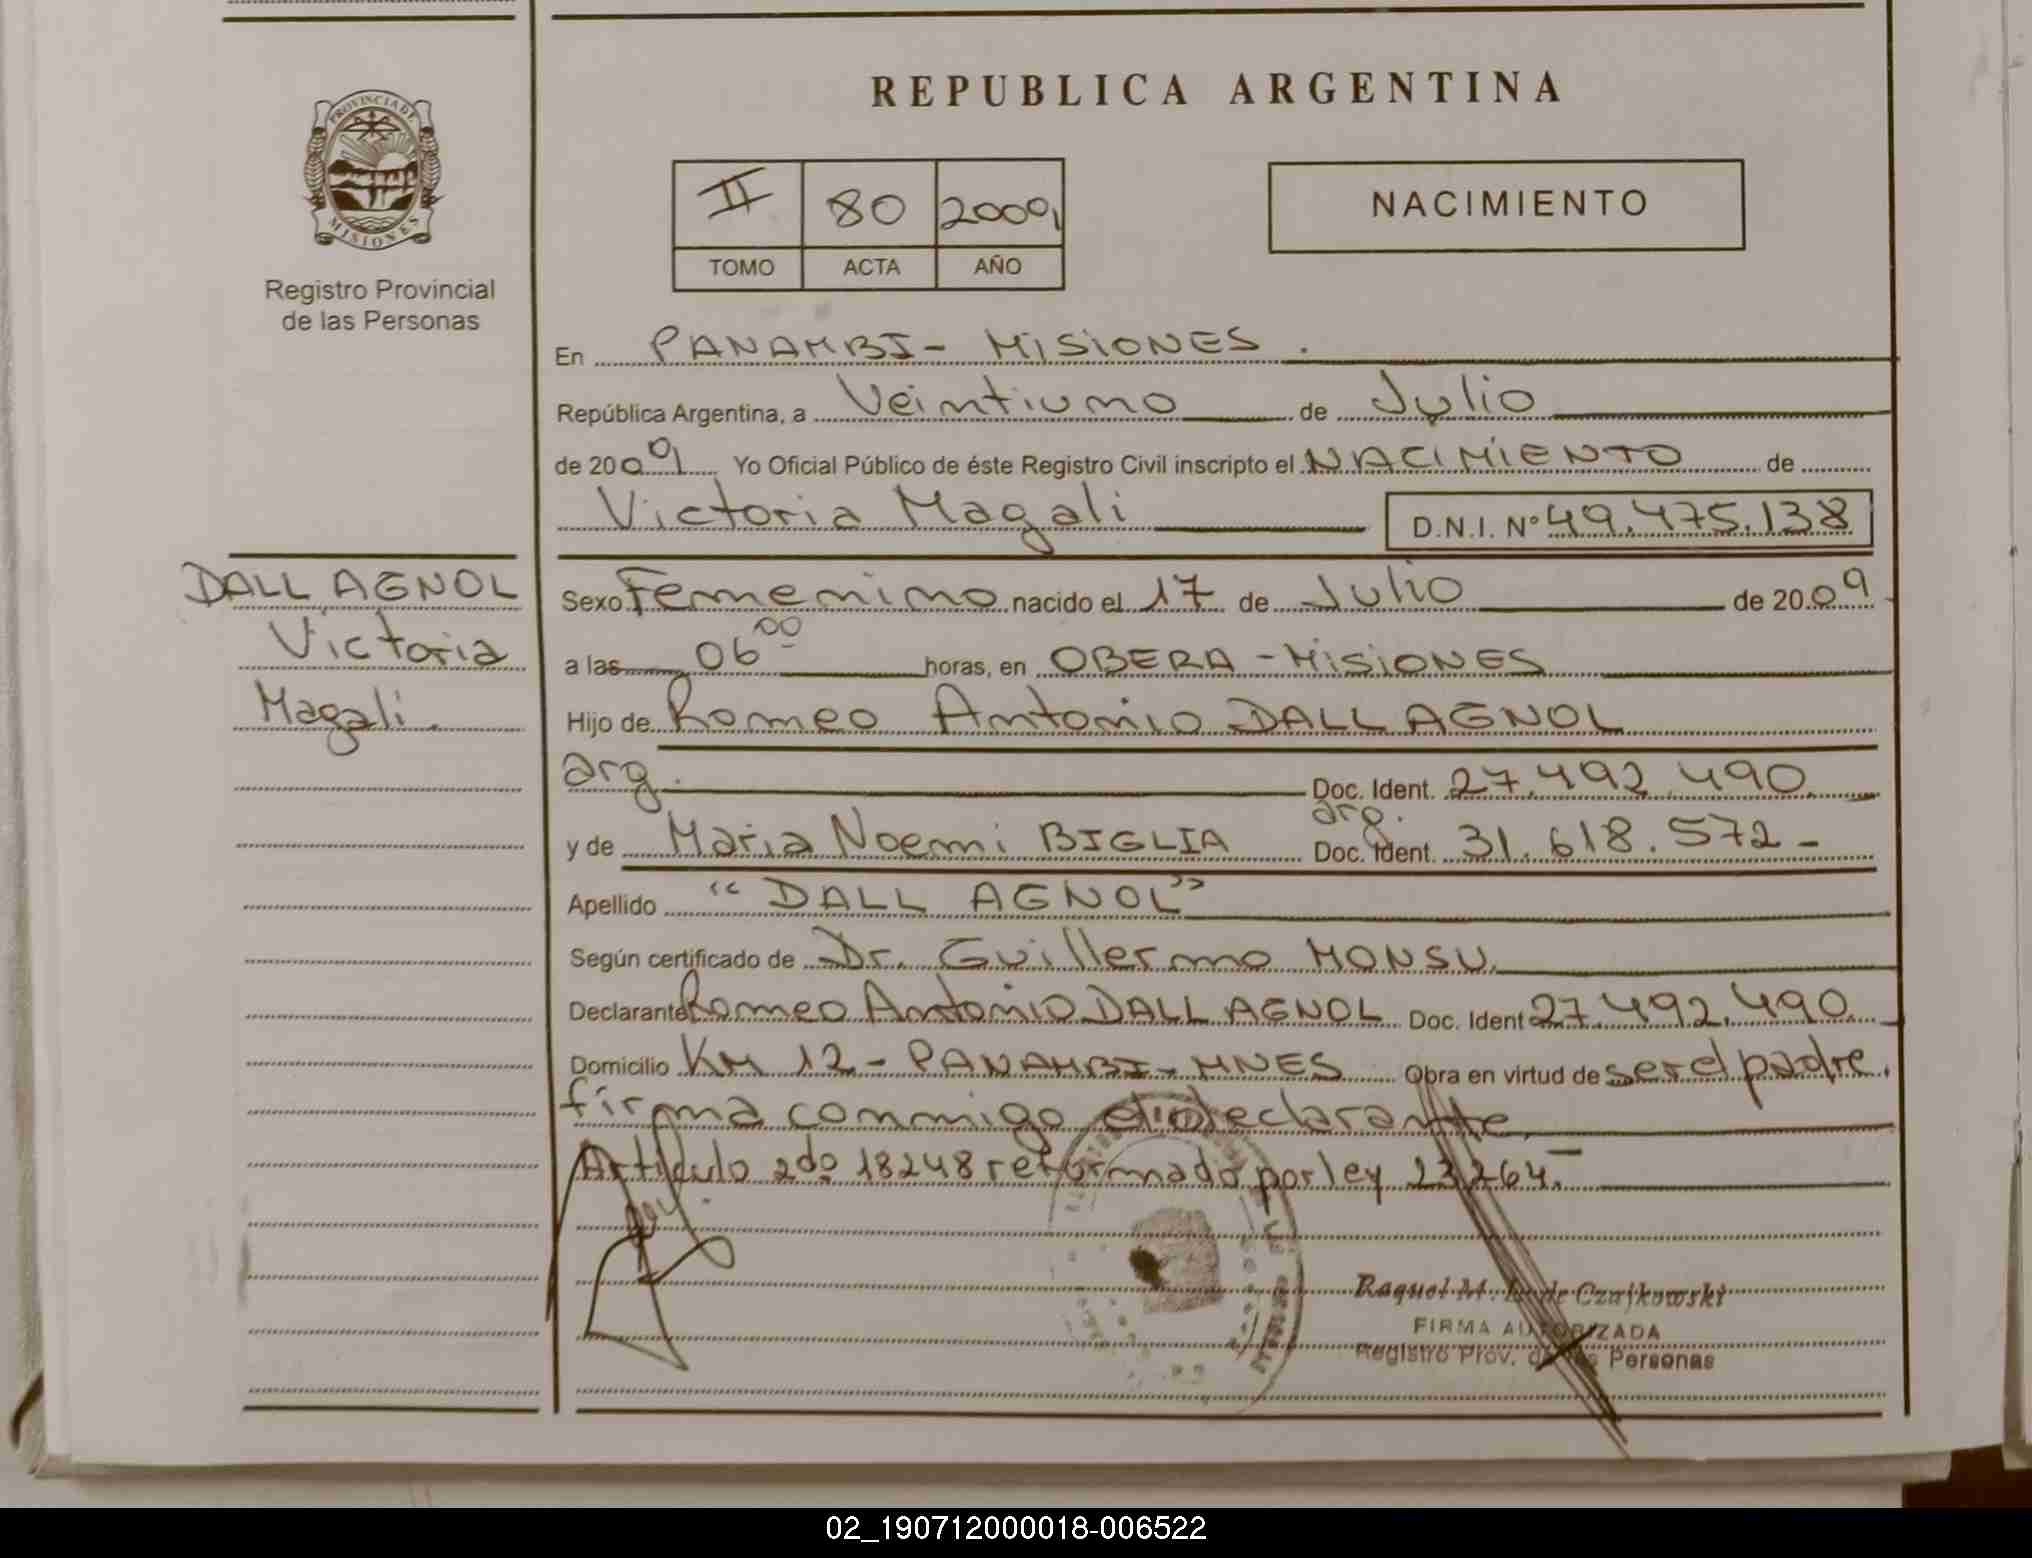 REPUBLICA ARGENTINA
PROVINCIA DE
MISIONES
Registro Provincial
de las Personas
II 80 2009
TOMO ACTA AÑO
NACIMIENTO
En PANAMBI - MISIONES.
República Argentina, a Veintiuno de Julio
de 2009 Yo Oficial Público de éste Registro Civil inscripto el NACIMIENTO de
Victoria Magali D.N.I. Nº 49.475.138
DALL AGNOL
Victoria
Magali.
Sexo Femenino nacido el 17 de Julio de 2009
a las 06 00 horas, en OBERA - MISIONES
Hijo de Romeo Antonio DALL AGNOL
arg. Doc. Ident. 27.492.490.
arg.
y de Maria Noemi BIGLIA Doc. Ident. 31.618.572-
Apellido "DALL AGNOL"
Según certificado de Dr. Guillermo MONSU.
Declarante Romeo Antonio DALL AGNOL Doc. Ident 27.492.490.
Domicilio KM 12 - PANAMBI - MNES Obra en virtud de ser el padre.
firma conmigo el declarante.
Artículo 2do 18248 reformado por ley 23264.-
Raquel M. de Czajkowski
FIRMA AUTORIZADA
Registro Prov. de las Personas
02_190712000018-006522